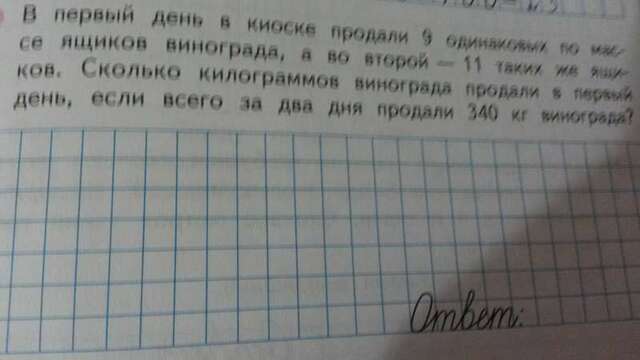 В первый день в киоске продали 9 одинаковых по мас-
се ящиков винограда, а во второй — 11 таких же ящи-
ков. Сколько килограммов винограда продали в первый
день, если всего за два дня продали 340 кг винограда?
Ответ: